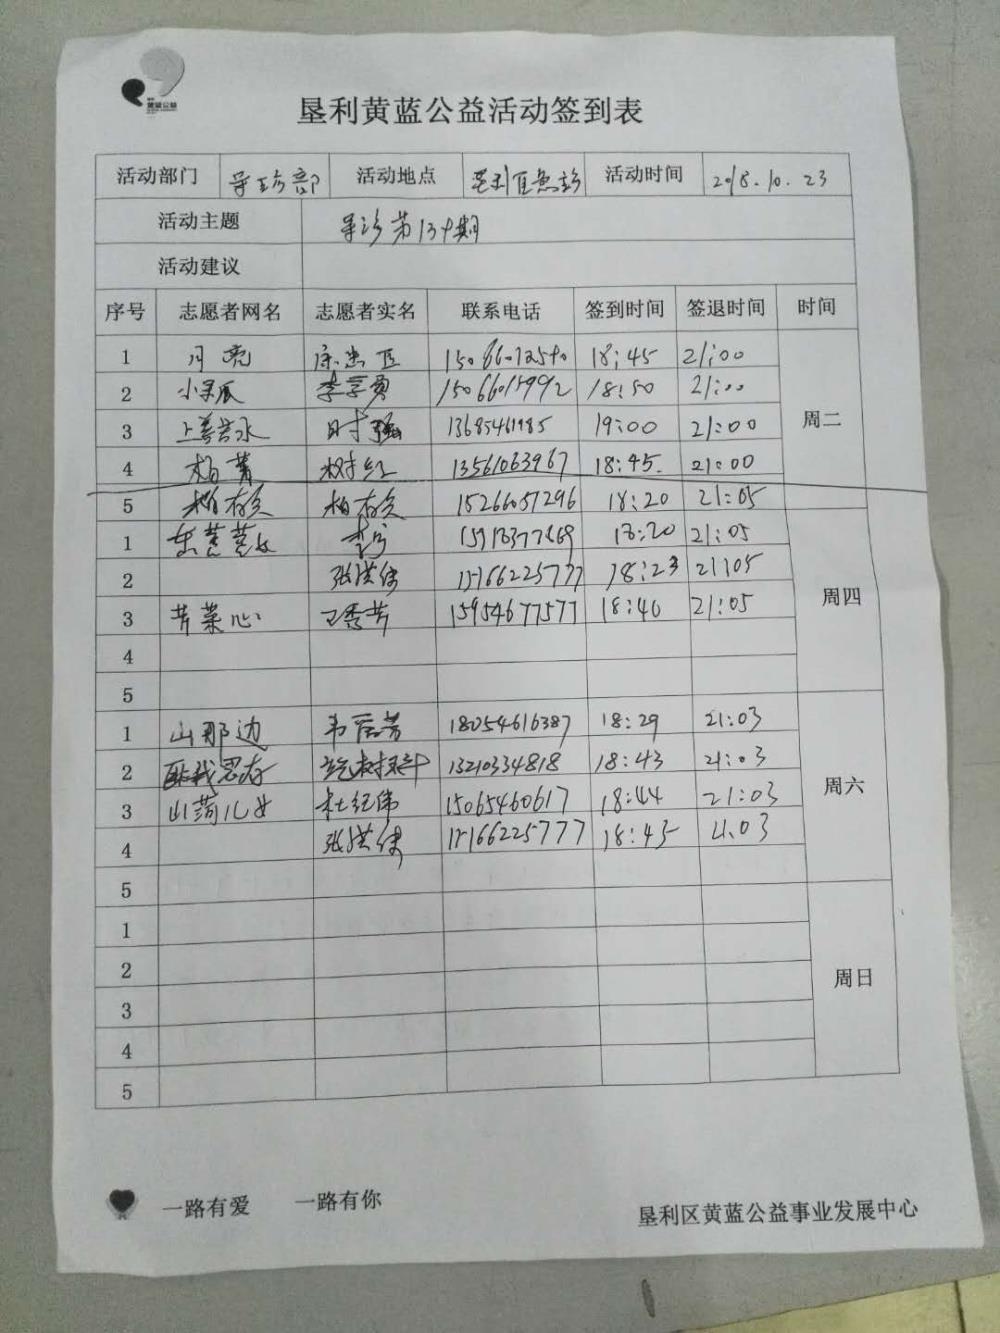 黄蓝公益
垦利黄蓝公益活动签到表
活动部门 导诊部 活动地点 垦利区 活动时间 2018.10.23
活动主题 导诊第139期
活动建议
序号 志愿者网名 志愿者实名 联系电话 签到时间 签退时间 时间
1 月亮 18:45 21:00
2 小呆瓜 李学勇 15066015992 18:50 21:00
3 上善若水 时强 19:00 21:00
周二
4 柏菁 树红 13561063967 18:45. 21:00
5 柏存久 柏存久 15266057296 18:20 21:05
1 18:20 21:05
2 张洪伟 17166225777 18:23 21:05
周四
3 芹菜心 王秀芳 15954677577 18:40 21:05
4
5
1 山那边 18054616387 18:29 21:03
2 13210334818 18:43 21:03
周六
3 山药儿女 杜纪伟 15065460617 18:44 21:03
4 张洪伟 17166225777 18:45 21.03
5
1
2
周日
3
4
5
一路有爱 一路有你
垦利区黄蓝公益事业发展中心